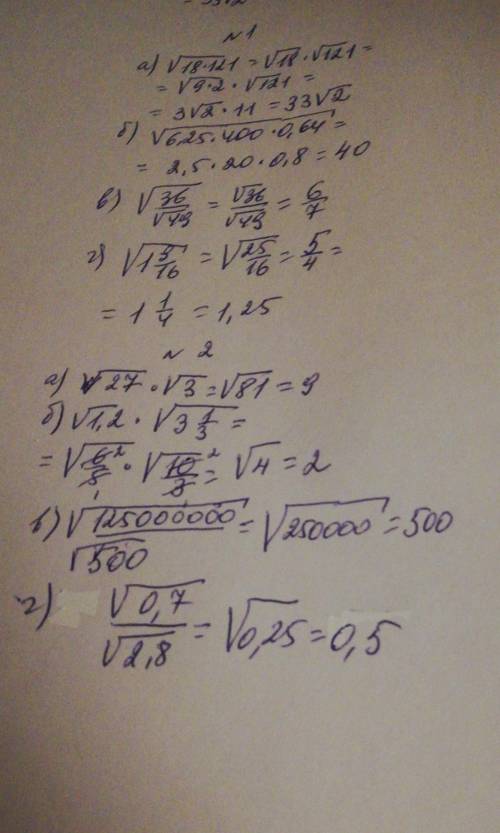 №1
а) √18·121 = √18·√121 =
= √9·2·√121 =
= 3√2·11 = 33√2
б) √6,25·400·0,64 =
= 2,5·20·0,8 = 40
в) √36/√49 = √36/√49 = 6/7
г) √1 9/16 = √25/16 = 5/4 =
= 1 1/4 = 1,25
№ 2
а) √27·√3 = √81 = 9
б) √1,2·√3 1/3 =
= √6/5·√10/3 = √4 = 2
в) √125000000/√500 = √250000 = 500
г) √0,7/√2,8 = √0,25 = 0,5